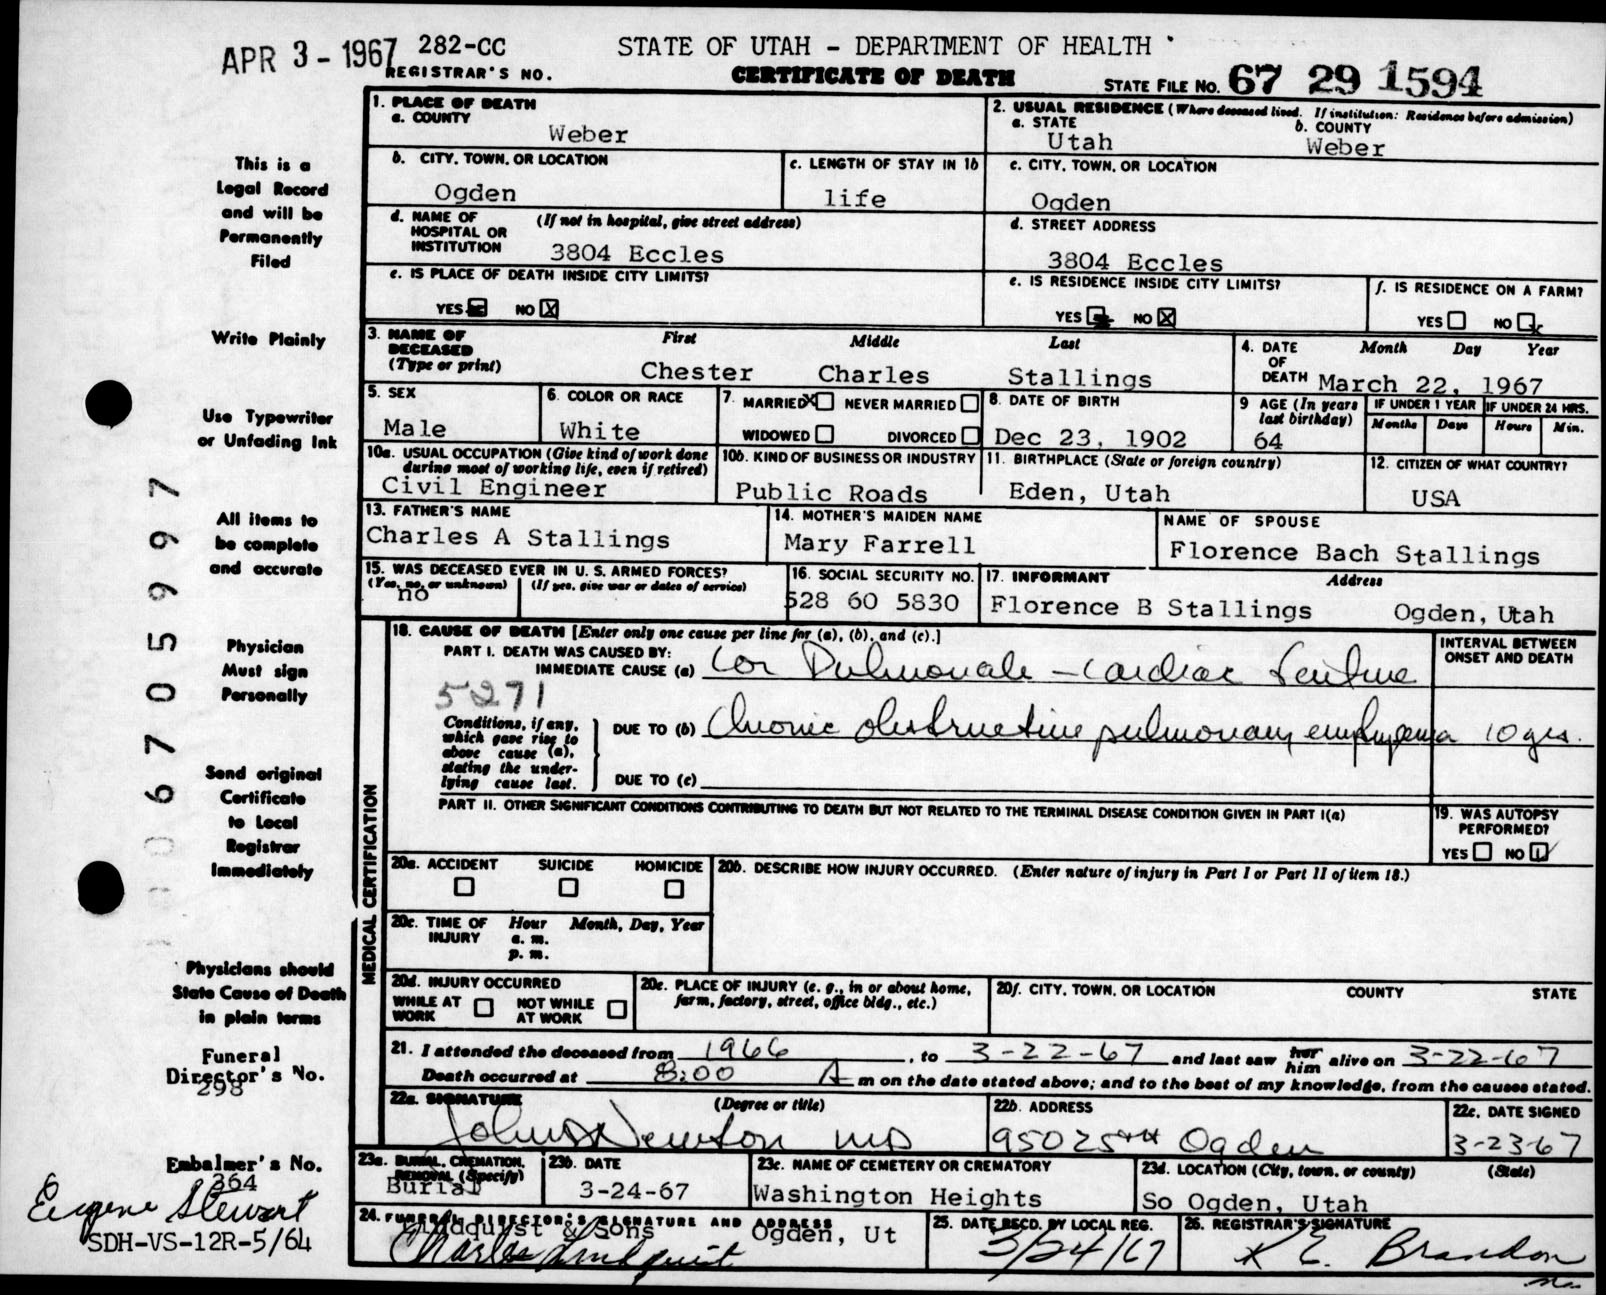 APR 3 - 1967 282-CC STATE OF UTAH - DEPARTMENT OF HEALTH
REGISTRAR'S NO. CERTIFICATE OF DEATH STATE FILE NO. 67 29 1594
1. PLACE OF DEATH
a. COUNTY
Weber
2. USUAL RESIDENCE (Where deceased lived. If institution: Residence before admission)
a. STATE b. COUNTY
Utah Weber
b. CITY, TOWN, OR LOCATION
Ogden
c. LENGTH OF STAY IN 1b
life
c. CITY, TOWN, OR LOCATION
Ogden
d. NAME OF HOSPITAL OR INSTITUTION (If not in hospital, give street address)
3804 Eccles
d. STREET ADDRESS
3804 Eccles
e. IS PLACE OF DEATH INSIDE CITY LIMITS?
YES NO X
e. IS RESIDENCE INSIDE CITY LIMITS?
YES NO X
f. IS RESIDENCE ON A FARM?
YES NO X
3. NAME OF DECEASED (Type or print)
First Middle Last
Chester Charles Stallings
4. DATE OF DEATH Month Day Year
March 22, 1967
5. SEX
Male
6. COLOR OR RACE
White
7. MARRIED X NEVER MARRIED
WIDOWED DIVORCED
8. DATE OF BIRTH
Dec 23, 1902
9 AGE (In years last birthday)
64
IF UNDER 1 YEAR IF UNDER 24 HRS.
Months Days Hours Min.
10a. USUAL OCCUPATION (Give kind of work done during most of working life, even if retired)
Civil Engineer
10b. KIND OF BUSINESS OR INDUSTRY
Public Roads
11. BIRTHPLACE (State or foreign country)
Eden, Utah
12. CITIZEN OF WHAT COUNTRY?
USA
13. FATHER'S NAME
Charles A Stallings
14. MOTHER'S MAIDEN NAME
Mary Farrell
NAME OF SPOUSE
Florence Bach Stallings
15. WAS DECEASED EVER IN U. S. ARMED FORCES?
(Yes, no, or unknown) (If yes, give war or dates of service)
no
16. SOCIAL SECURITY NO.
528 60 5830
17. INFORMANT Address
Florence B Stallings Ogden, Utah
MEDICAL CERTIFICATION
18. CAUSE OF DEATH [Enter only one cause per line for (a), (b), and (c).]
INTERVAL BETWEEN ONSET AND DEATH
PART I. DEATH WAS CAUSED BY:
IMMEDIATE CAUSE (a) Cor Pulmonale - cardiac failure
5271
Conditions, if any, which gave rise to above cause (a), stating the underlying cause last.
DUE TO (b) Chronic obstructive pulmonary emphysema 10 yrs.
DUE TO (c)
PART II. OTHER SIGNIFICANT CONDITIONS CONTRIBUTING TO DEATH BUT NOT RELATED TO THE TERMINAL DISEASE CONDITION GIVEN IN PART I(a)
19. WAS AUTOPSY PERFORMED?
YES NO
20a. ACCIDENT SUICIDE HOMICIDE
20b. DESCRIBE HOW INJURY OCCURRED. (Enter nature of injury in Part I or Part II of item 18.)
20c. TIME OF INJURY Hour Month, Day, Year
a. m.
p. m.
20d. INJURY OCCURRED
WHILE AT WORK NOT WHILE AT WORK
20e. PLACE OF INJURY (e. g., in or about home, farm, factory, street, office bldg., etc.)
20f. CITY, TOWN, OR LOCATION COUNTY STATE
21. I attended the deceased from 1966, to 3-22-67 and last saw her him alive on 3-22-67
Death occurred at 8:00 A m on the date stated above; and to the best of my knowledge, from the causes stated.
22a. SIGNATURE (Degree or title)
Newton MD
22b. ADDRESS
950 25th Ogden
22c. DATE SIGNED
3-23-67
23a. BURIAL, CREMATION, REMOVAL (Specify)
Burial
23b. DATE
3-24-67
23c. NAME OF CEMETERY OR CREMATORY
Washington Heights
23d. LOCATION (City, town, or county) (State)
So Ogden, Utah
24. FUNERAL DIRECTOR'S SIGNATURE AND ADDRESS
Lindquist & Sons Ogden, Ut
Charles Lindquist
25. DATE RECD. BY LOCAL REG.
3/24/67
26. REGISTRAR'S SIGNATURE
K E. Brandon
This is a
Legal Record
and will be
Permanently
Filed
Write Plainly
Use Typewriter
or Unfading Ink
All items to
be complete
and accurate
Physician
Must sign
Personally
Send original
Certificate
to Local
Registrar
Immediately
Physicians should
State Cause of Death
in plain terms
Funeral
Director's No.
298
Embalmer's No.
364
Eugene Stewart
SDH-VS-12R-5/64
006705997